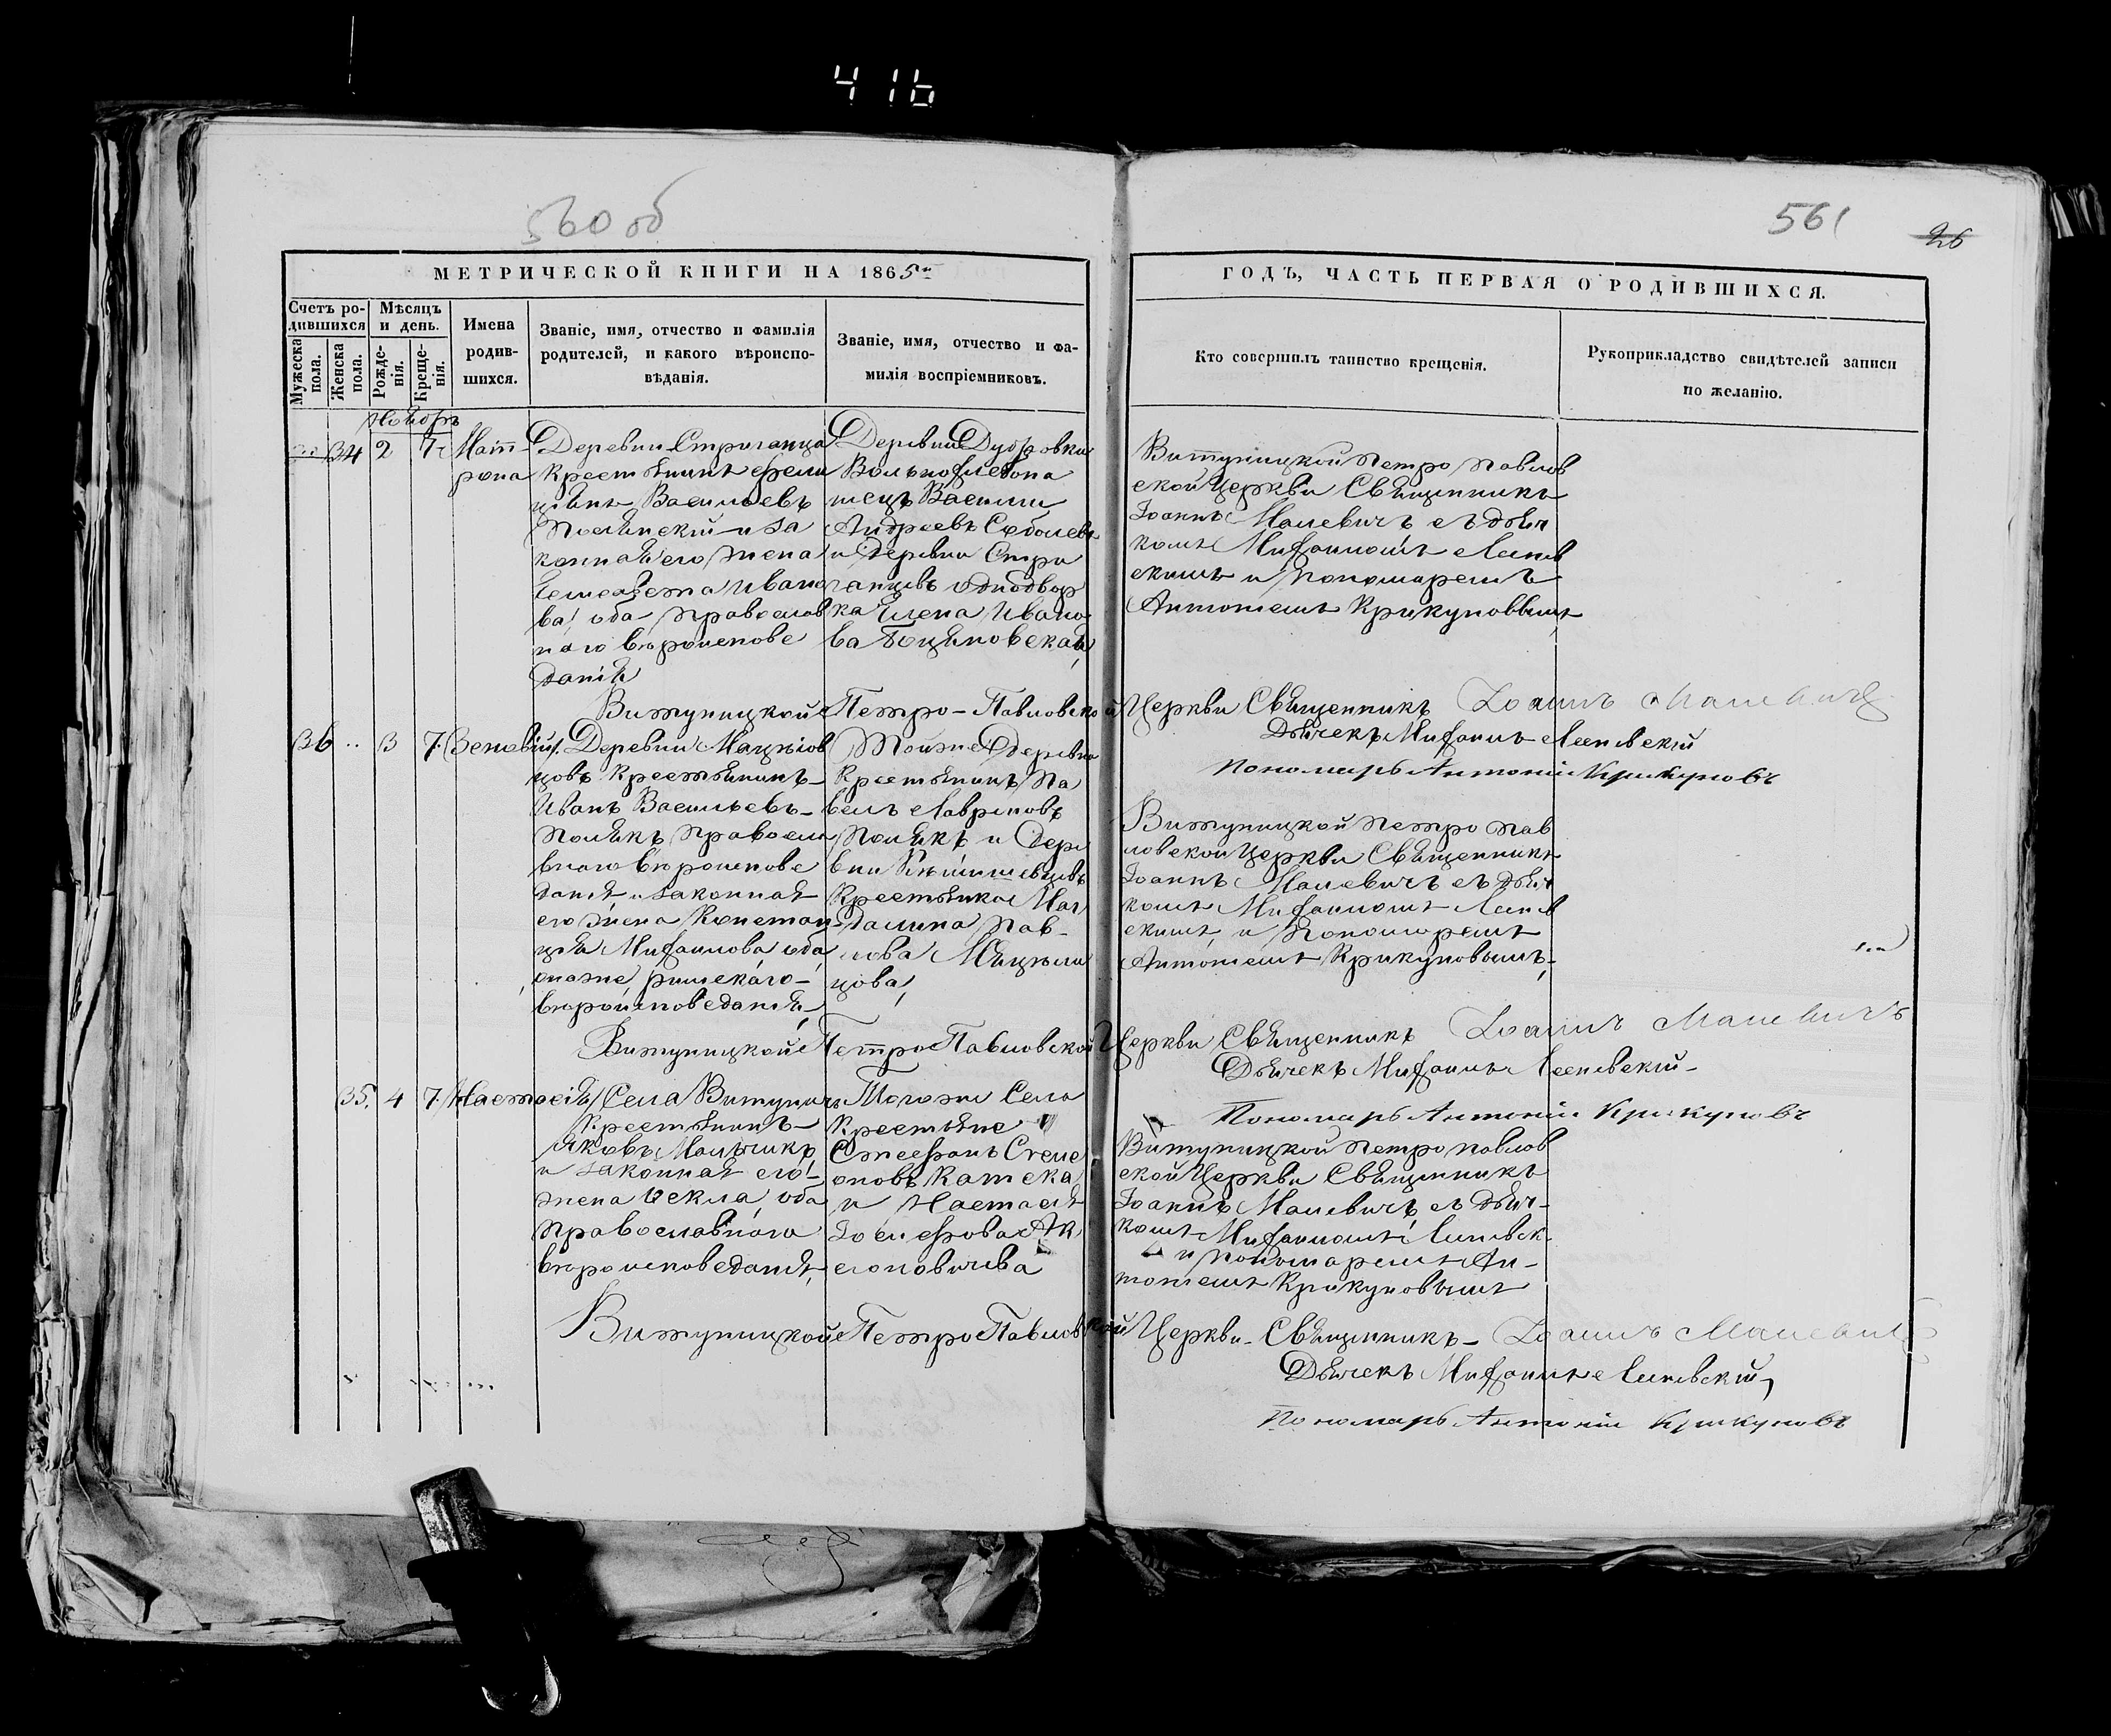 416
560 об
561
26
МЕТРИЧЕСКОЙ КНИГИ НА 1865
ГОДЪ, ЧАСТЬ ПЕРВАЯ О РОДИВШИХСЯ.
Счетъ ро-
дившихся
Мужеска
пола.
Женска
пола.
Мѣсяцъ
и день.
Рожде-
нія.
Креще-
нія.
Имена
родив-
шихся.
Званіе, имя, отчество и фамилія
родителей, и какого вѣроиспо-
вѣданія.
Званіе, имя, отчество и фа-
милія воспріемниковъ.
Кто совершилъ таинство крещенія.
Рукоприкладство свидѣтелей записи
по желанію.
34 2 7
Мат-
рона
Деревни Стриганца
Крестьянинъ Фели
ціянъ Васильевъ
Полянскій и за
конная его жена
Елисавета Ивано
ва, оба православ
наго вѣроиспове
данія
Деревни Дубровки
Василий
Андреевъ Соболевъ
и деревни Стри
ганцевъ однодвор
ка Елена Ивано
ва
Витуницкой Петро Павлов
ской Церкви Священникъ
Іоаннъ Малевичъ съ дьяч
комъ Михаиломъ
скимъ и Пономаремъ
Антоніемъ Крикуновымъ
Витуницкой Петро-Павловской Церкви Священникъ Іоаннъ Малевичъ
Дьячекъ Михаилъ
Пономарь Антоній Крикуновъ
36 .. 3 7
Зеновій
Деревни
цовъ Крестьянинъ
Иванъ Васильевъ
Полякъ Правосла
внаго вѣроиспове
данія и законная
его жена Констан
ція Михаилова, она
римскаго
вѣроисповеданія
Тойже деревни
Крестьянинъ Па
велъ Лавриновъ
Полякъ и Дере
вни
Крестьянка Маг
далина Пав-
лова
цова
Витуницкой Петро Пав
ловской Церкви Священникъ
Іоаннъ Малевичъ съ дьяч
комъ Михаиломъ
скимъ и Пономаремъ
Антоніемъ Крикуновымъ
Витуницкой Петро Павловской Церкви Священникъ Іоаннъ Малевичъ
Дьячекъ Михаилъ
Пономарь Антоній Крикуновъ
35. 4 7
Настасія
Села Витуничь
Крестьянинъ
Яковъ
и законная его
жена Фекла, оба
Православнаго
вѣроисповеданія
Тогоже Села
Крестьяне
Стефанъ
оновъ
и Настасія
Іосифова
Витуницкой Петро Павлов
ской Церкви Священникъ
Іоаннъ Малевичъ съ дьяч-
комъ Михаиломъ
и Пономаремъ Ан-
тоніемъ Крикуновымъ
Витуницкой Петро Павловской Церкви Священникъ Іоаннъ Малевичъ
Дьячекъ Михаилъ
Пономарь Антоній Крикуновъ